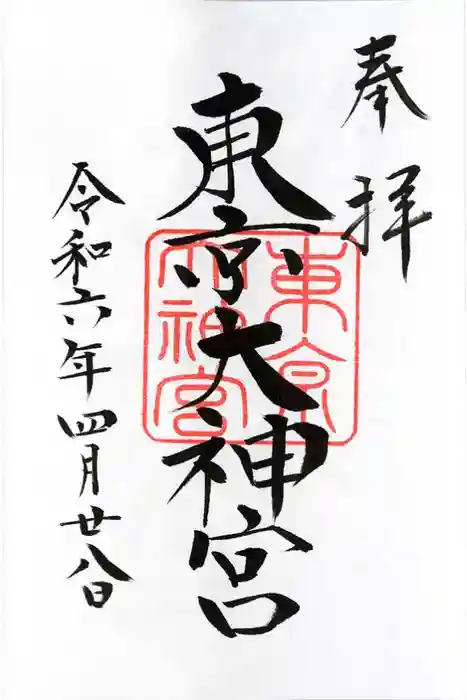 奉拝
東京大神宮
東京大神宮
令和六年四月廿八日